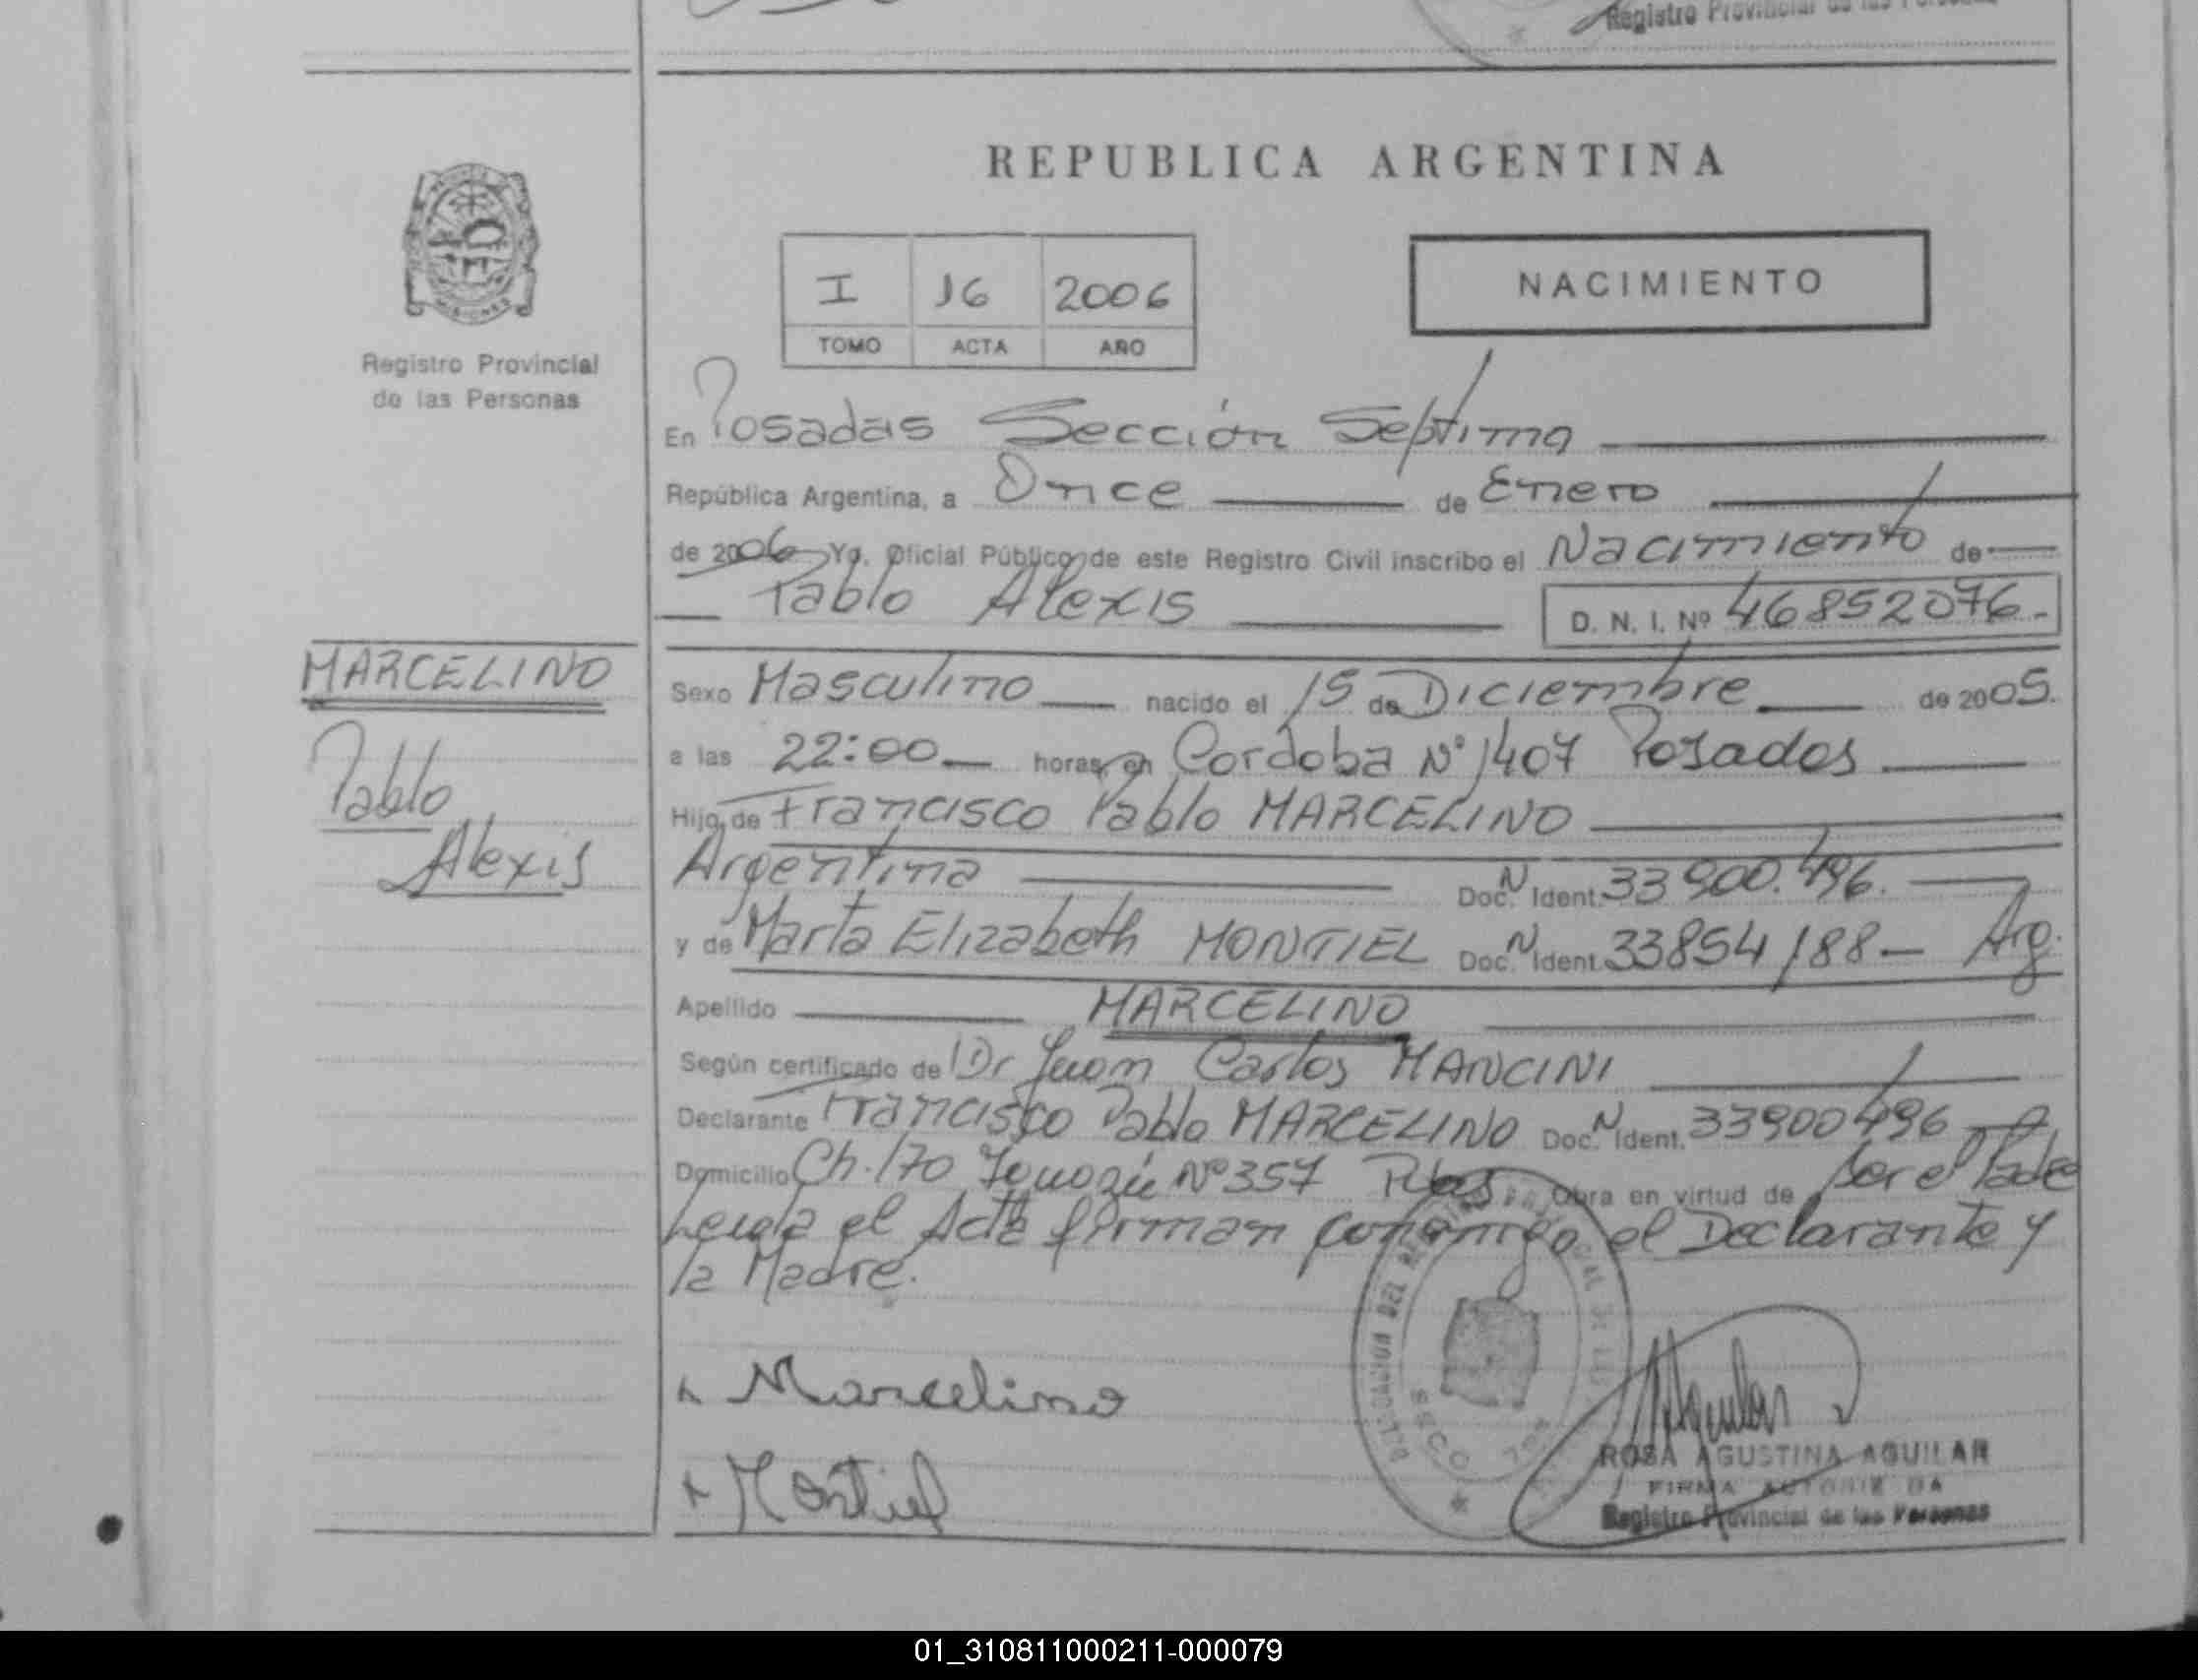 Registro Provincial de las Personas
REPUBLICA ARGENTINA
I 16 2006
TOMO ACTA AÑO
NACIMIENTO
MISIONES
Registro Provincial
de las Personas
En Posadas Sección Septima
República Argentina, a Once de Enero
de 2006 Yo, Oficial Público de este Registro Civil inscribo el Nacimiento de
Pablo Alexis D. N. I. Nº 46852076.-
MARCELINO
Pablo
Alexis
Sexo Masculino nacido el 15 de Diciembre de 2005.
a las 22:00 horas, en Cordoba Nº 1407 Posadas
Hijo de Francisco Pablo MARCELINO
Argentina Doc. N Ident. 33900.496.
y de Marta Elizabeth MONTIEL Doc. N Ident. 33854188- Arg.
Apellido MARCELINO
Según certificado de Dr Juan Carlos MANCINI
Declarante Francisco Pablo MARCELINO Doc. N Ident. 33900496
Domicilio Ch. 170 Nº 357 Pdas Obra en virtud de ser el Padre
Leida el Acta firman conmigo el Declarante y
la Madre.
Marcelino
Montiel
Aguilar
ROSA AGUSTINA AGUILAR
FIRMA AUTORIZADA
Registro Provincial de las Personas
01_310811000211-000079